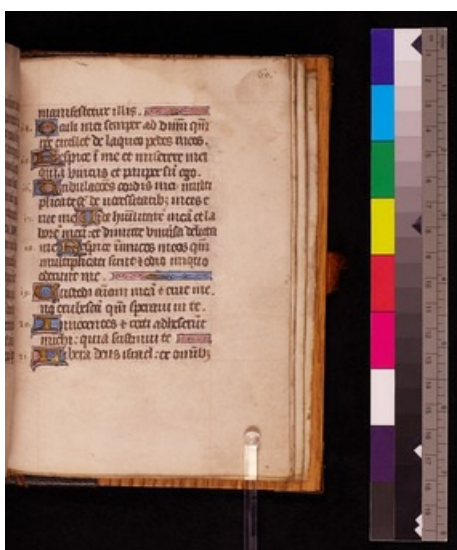 manifestetur illis.
14. Oculi mei semper ad dnm qm
ipe evellet de laqueo pedes meos.
15. Respice i me et miserere mei
quia unicus et pauper su ego.
16. Tribulacoes cordis mei multi
plicate st de necessitatib; meis e
rue me 17. Vide humilitate mea et la
bore meu: et dimitte universa delicta
18. mea Respice inimicos meos qm
multiplicati sunt & odio iniquo
oderunt me.
19. Custodi aiam mea & erue me.
no erubesca qm speravi in te.
20. Innocentes & recti adheserut
michi: quia sustinui te
21. Libera deus israel: ex omnib;